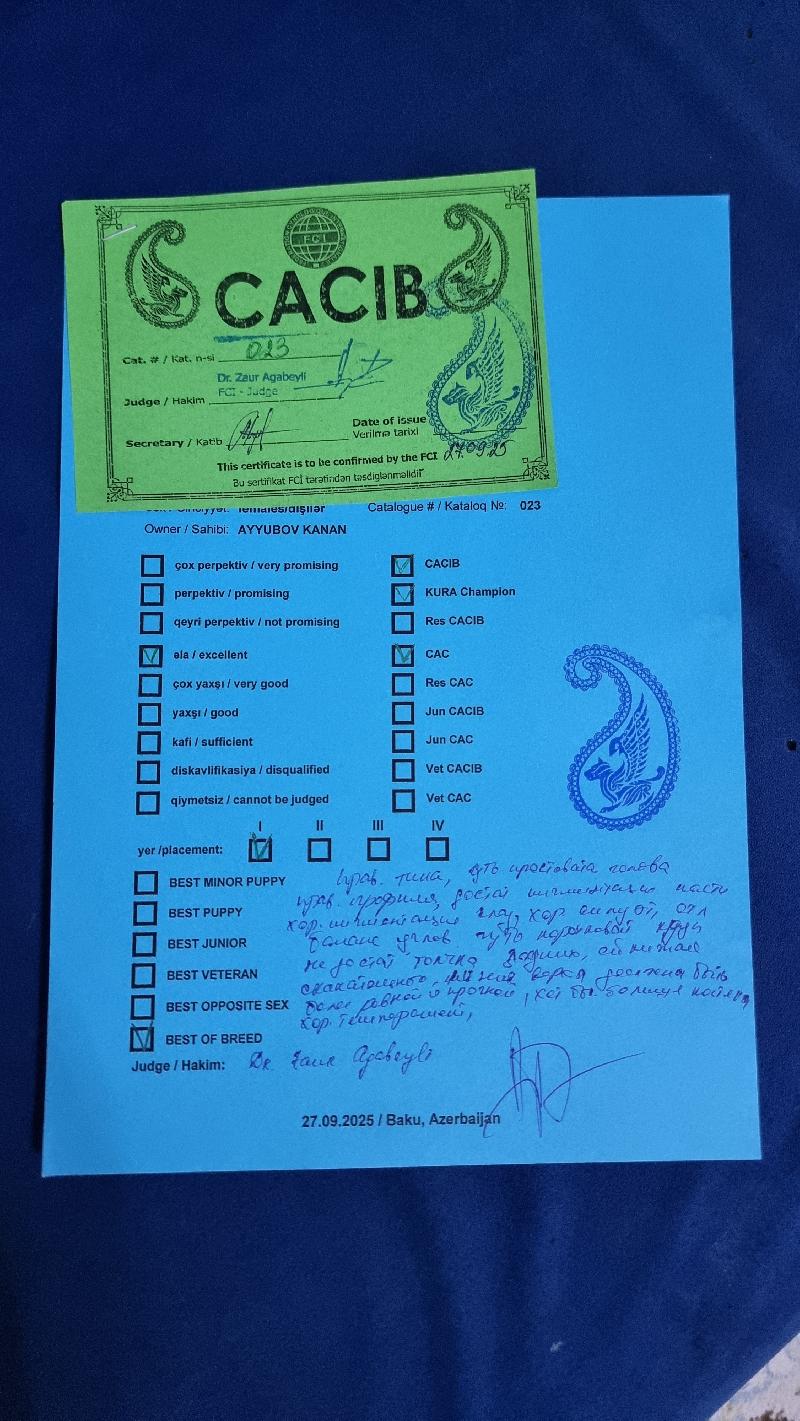 FCI
CACIB
Cat. # / Kat. n-si 023
Dr. Zaur Agabeyli
FCI - Judge
Judge / Hakim
Date of issue
Secretary / Katib
Verilmə tarixi
27.09.25
This certificate is to be confirmed by the FCI
Bu sertifikat FCİ tərəfindən təsdiqlənməlidir
females/dişilər Catalogue # / Kataloq №: 023
Owner / Sahibi: AYYUBOV KANAN
çox perpektiv / very promising CACIB
perpektiv / promising KURA Champion
qeyri perpektiv / not promising Res CACIB
əla / excellent CAC
çox yaxşı / very good Res CAC
yaxşı / good Jun CACIB
kafi / sufficient Jun CAC
diskavlifikasiya / disqualified Vet CACIB
qiymetsiz / cannot be judged Vet CAC
I II III IV
yer /placement:
BEST MINOR PUPPY прав. типа, чуть простовата голова
BEST PUPPY прав. достат пигментация пасти
хор. пигментация глаз, хор
BEST JUNIOR баланс углов чуть
BEST VETERAN не достат толчка задних,
должна быть
BEST OPPOSITE SEX более ровной и прочной, хот бы
хор. темперамент,
BEST OF BREED
Judge / Hakim: Dr. Zaur Agabeyli
27.09.2025 / Baku, Azerbaijan